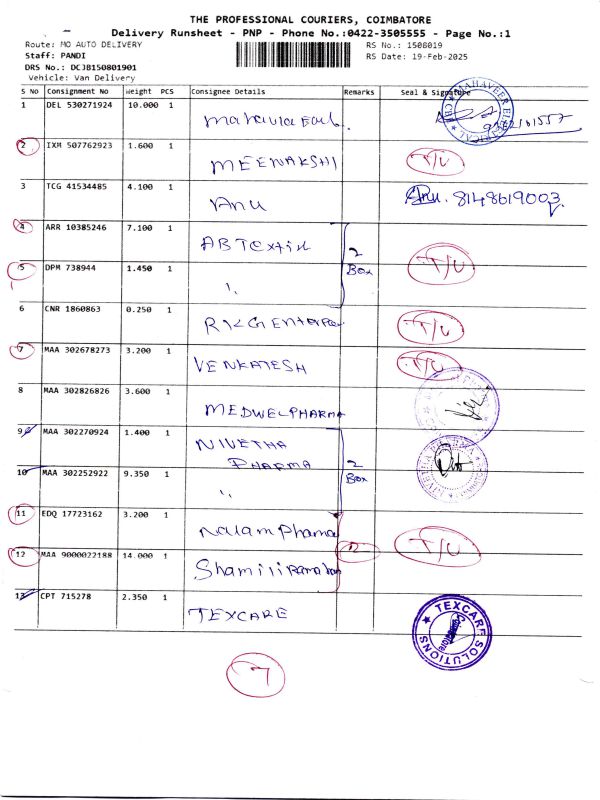 THE PROFESSIONAL COURIERS, COIMBATORE
Delivery Runsheet - PNP - Phone No.:0422-3505555 - Page No.:1
Route: MO AUTO DELIVERY RS No.: 1508019
Staff: PANDI RS Date: 19-Feb-2025
DRS No.: DCJB150801901
Vehicle: Van Delivery
S No Consignment No Weight PCS Consignee Details Remarks Seal & Signature
1 DEL 530271924 10.000 1
2 IXM 507762923 1.600 1 MEENAKSHI T/U
3 TCG 41534485 4.100 1 Anu Anu. 8148619003
4 ARR 10385246 7.100 1 AB Textil 2 Box T/U
5 DPM 738944 1.450 1 "
6 CNR 1860863 0.250 1 RKG Enterpr T/U
7 MAA 302678273 3.200 1 VENKATESH T/U
8 MAA 302826826 3.600 1 MEDWELPHARMA
9 MAA 302270924 1.400 1 NIVETHA PHARMA 2 Box
10 MAA 302252922 9.350 1 "
11 EDQ 17723162 3.200 1 Nalam Pharma T/U
12 MAA 9000022188 14.000 1
13 CPT 715278 2.350 1 TEXCARE TEXCARE SOLUTIONS
7